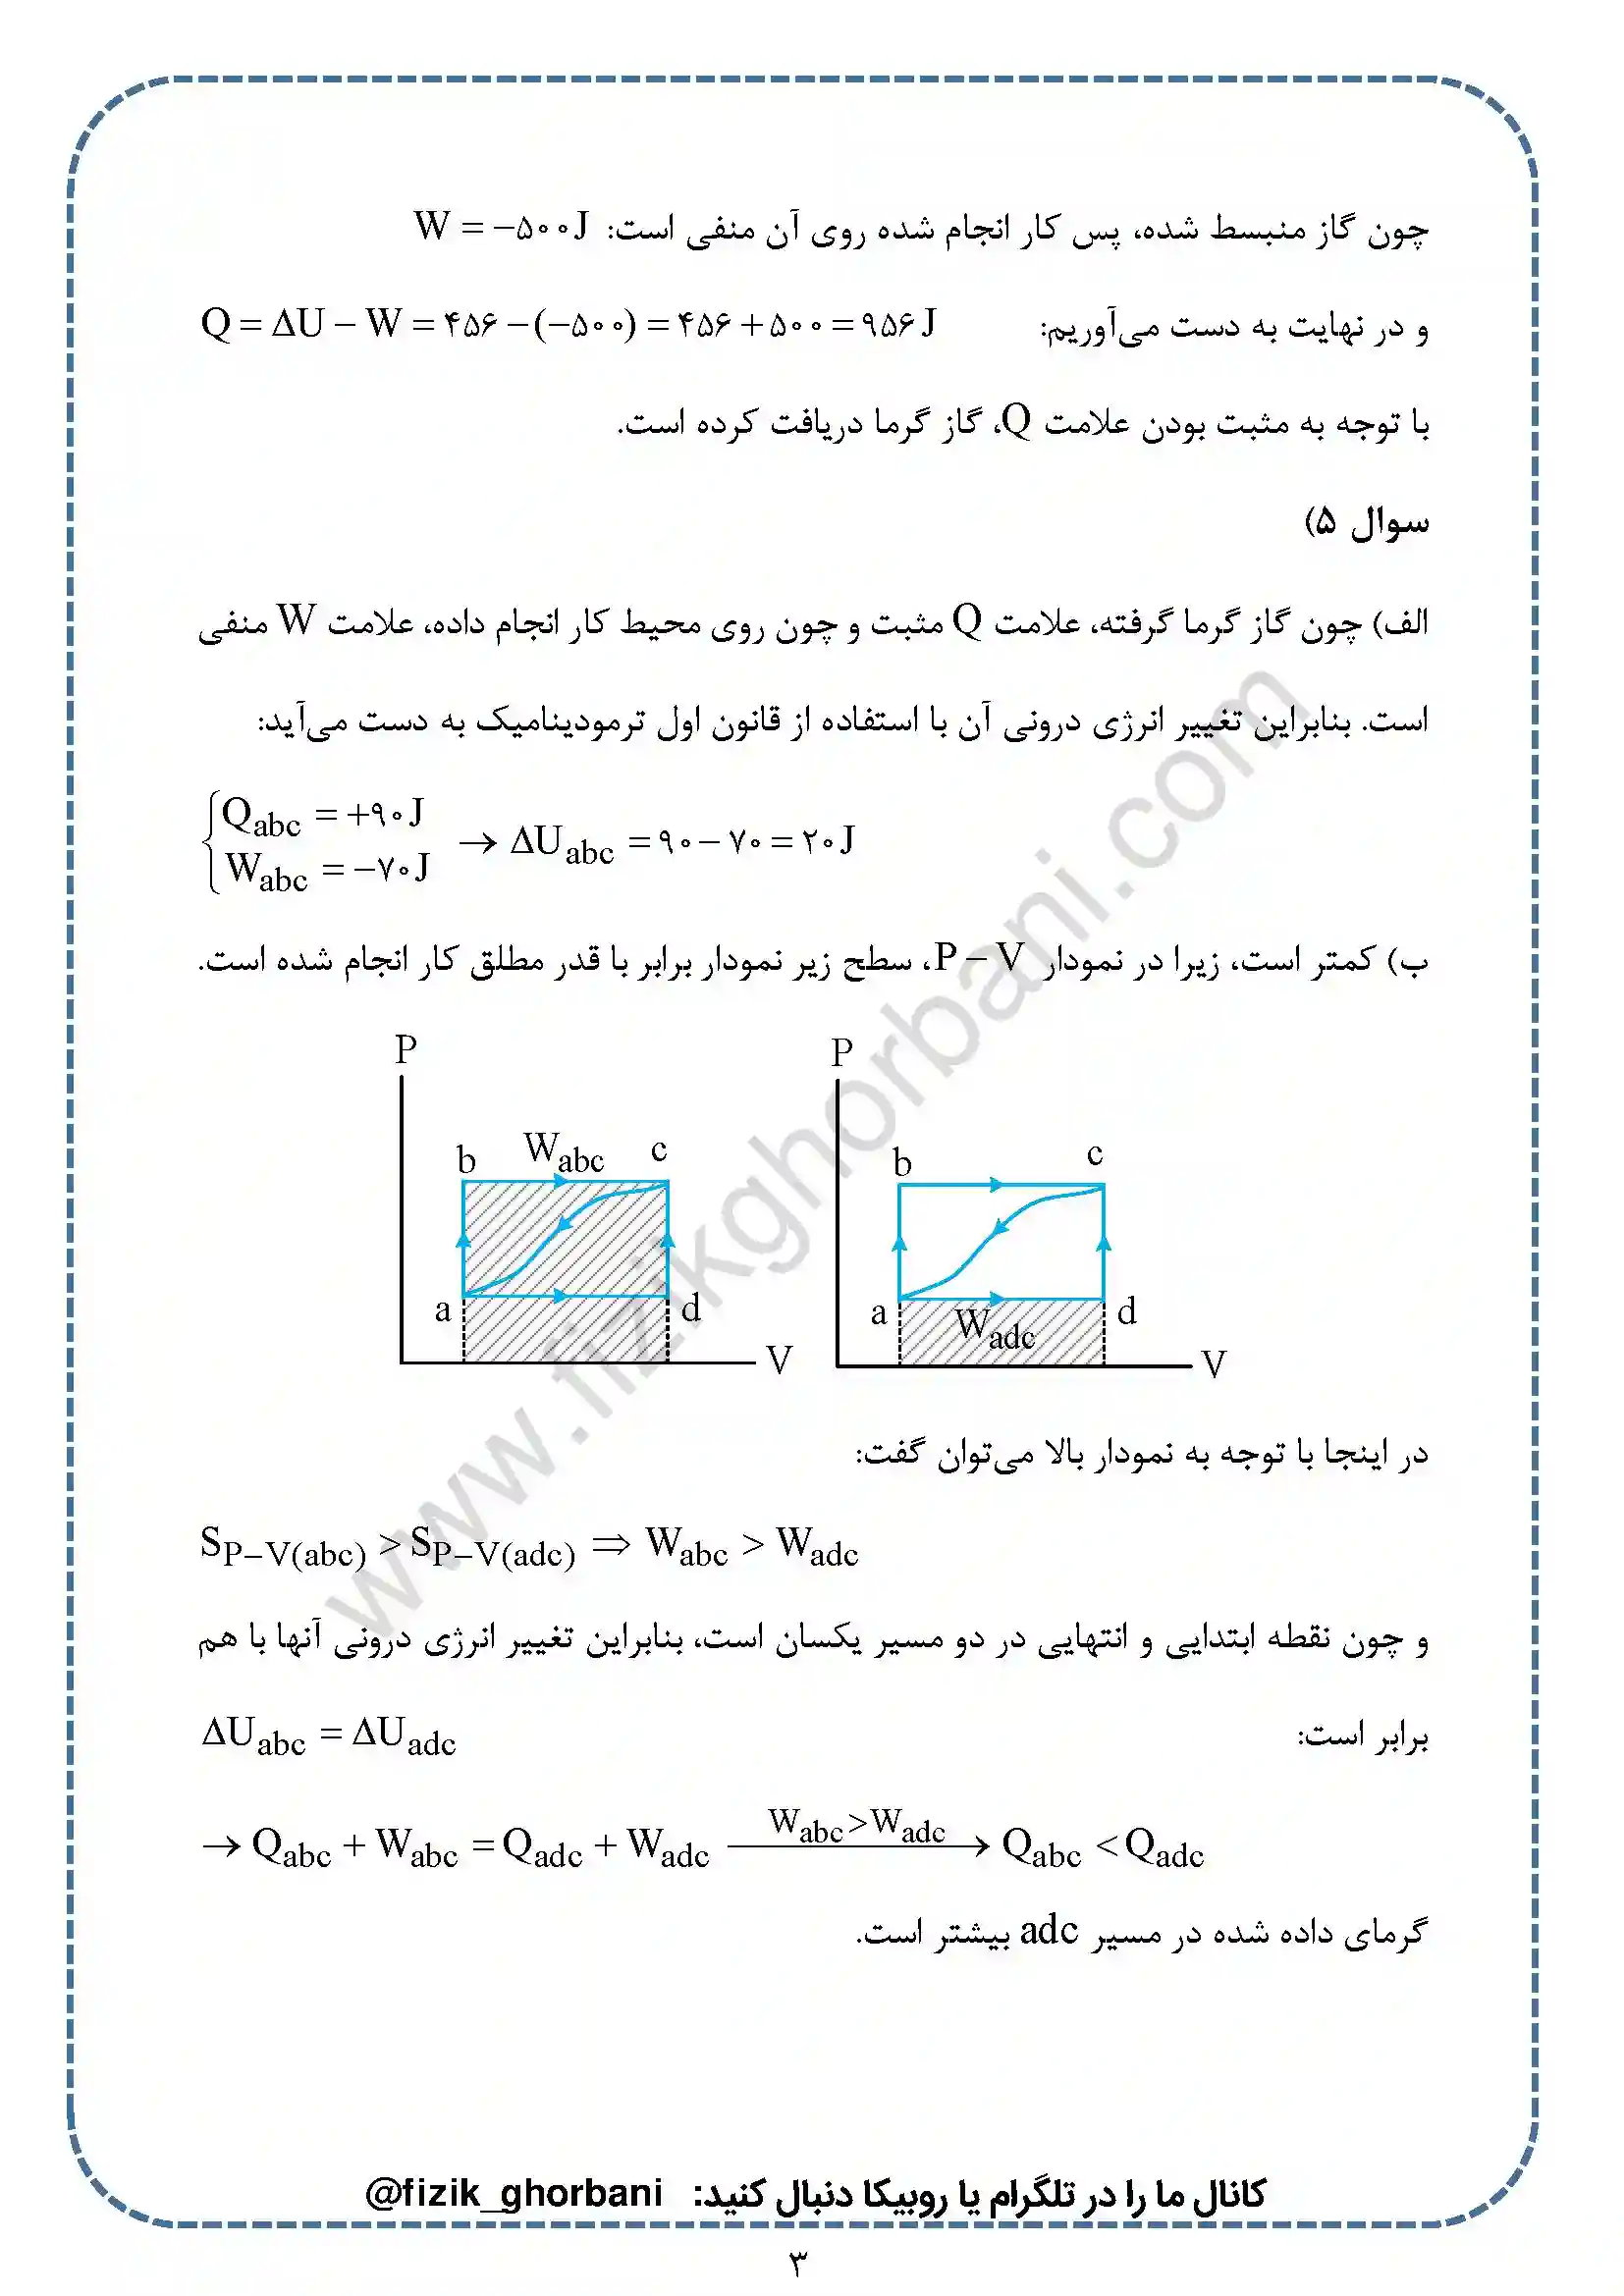 چون گاز منبسط شده، پس کار انجام شده روی آن منفی است: W = −۵۰۰J
و در نهایت به دست می‌آوریم: Q = ΔU − W = ۴۵۶ − (−۵۰۰) = ۴۵۶ + ۵۰۰ = ۹۵۶ J
با توجه به مثبت بودن علامت Q، گاز گرما دریافت کرده است.
سوال ۵)
الف) چون گاز گرما گرفته، علامت Q مثبت و چون روی محیط کار انجام داده، علامت W منفی
است. بنابراین تغییر انرژی درونی آن با استفاده از قانون اول ترمودینامیک به دست می‌آید:
{Qabc = +۹۰J
Wabc = −۷۰J → ΔUabc = ۹۰ − ۷۰ = ۲۰J
ب) کمتر است، زیرا در نمودار P − V، سطح زیر نمودار برابر با قدر مطلق کار انجام شده است.
P
b Wabc c
a d
V
P
b c
a Wadc d
V
در اینجا با توجه به نمودار بالا می‌توان گفت:
SP−V(abc) > SP−V(adc) ⇒ Wabc > Wadc
و چون نقطه ابتدایی و انتهایی در دو مسیر یکسان است، بنابراین تغییر انرژی درونی آنها با هم
برابر است: ΔUabc = ΔUadc
→ Qabc + Wabc = Qadc + Wadc Wabc>Wadc → Qabc < Qadc
گرمای داده شده در مسیر adc بیشتر است.
www.fizikghorbani.com
کانال ما را در تلگرام یا روبیکا دنبال کنید: @fizik_ghorbani
۳